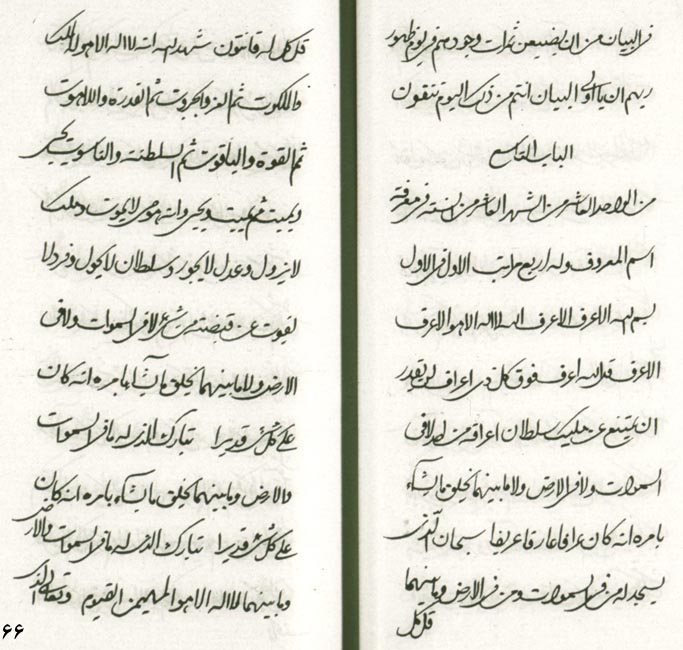 في البيان من ان يضيعن ثمرات وجودهم في يوم ظهور
ربهم ان يا اولي البيان انتم من ذلك اليوم تتقون
الباب التاسع
من الواحد العاشر من الشهر العاشر من السنة في معرفة
اسم المعروف وله اربع مراتب الاول في الاول
بسم الله الاعرف الاعرف الله لا اله الا هو الاعرف
الاعرف قل الله اعرف فوق كل ذي اعراف لن يقدر
ان يمتنع عن مليك سلطان اعرافه من احد لا في
السموات ولا في الارض ولا ما بينهما يخلق ما يشاء
بامره انه كان عرافا عارفا عريفا سبحان الذي
يسجد له من في السموات ومن في الارض وما بينهما
قل كل
قل كل له قانتون شهد الله انه لا اله الا هو له الملك
والملكوت ثم العز والجبروت ثم القدرة واللاهوت
ثم القوة والياقوت ثم السلطنة والناسوت يحيي
ويميت ثم يميت ويحيي وانه هو حي لا يموت وملك
لا يزول وعدل لا يجور وسلطان لا يحول وفرد لا
يفوت عن قبضته من شيء لا في السموات ولا في
الارض ولا ما بينهما يخلق ما يشاء بامره انه كان
على كل شيء قديرا تبارك الذي له ما في السموات
والارض وما بينهما يخلق ما يشاء بامره انه كان
على كل شيء قديرا تبارك الذي له ما في السموات والارض
وما بينهما لا اله الا هو المهيمن القيوم وتعالى الذي
۶۶